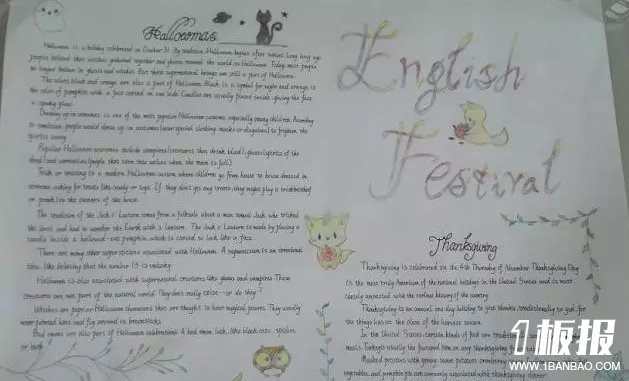 Hallowmas
Halloween is a holiday celebrated on October 31. By tradition, Halloween begins after sunset. Long long ago
people believed that witches gathered together and ghosts roamed the world on Halloween. Today, most people
no longer believe in ghosts and witches. But these supernatural beings are still a part of Halloween.
The colors black and orange are also a part of Halloween. Black is a symbol for night and orange is
the color of pumpkins with a face carved on one side. Candles are usually placed inside, giving the face
a spooky glow.
Dressing up in costumes is one of the most popular Halloween customs, especially among children. According
to tradition, people would dress up in costumes (wear special clothing, masks or disguises) to frighten the
spirits away.
Popular Halloween costumes include vampires (creatures that drink blood), ghosts (spirits of the
dead) and werewolves (people that turn into wolves when the moon is full).
Trick or Treating is a modern Halloween custom where children go from house to house dressed in
costume, asking for treats like candy or toys. If they don't get any treats, they might play a
or prank) on the owners of the house.
The tradition of the Jack o' Lantern comes from a folktale about a man named Jack who tricked
the devil and had to wander the Earth with a lantern. The Jack o' Lantern is made by placing a
candle inside a hollowed-out pumpkin, which is carved to look like a face.
There are many other superstitions associated with Halloween. A superstition is an irrational
idea, like believing that the number 13 is unlucky.
Halloween is also associated with supernatural creatures like ghosts and vampires. These
creatures are not part of the natural world. They don't really exist-or do they?
Witches are popular Halloween characters that are thought to have magical powers. They usually
wear pointed hats and fly around on broomsticks.
Bad omens are also part of Halloween celebrations. A bad omen luck, like black cats, spiders
or bats.
English
Festival
Thanksgiving
Thanksgiving is celebrated on the 4th Thursday of November. Thanksgiving Day
is the most truly American of the national holidays in the United States and is most
closely connected with the earliest history of the country.
Thanksgiving is an annual one-day holiday to give thanks, traditionally to god, for
the things at the close of the harvest season.
In the United States, certain kinds of food are traditionally
meals. Turkey usually the featured item on any thanksgiving
Mashed potatoes with gravy, sweet potatoes, cranberry
vegetables, and pumpkin pie are commonly associated with thanksgiving dinner.
1板报
WWW.1BANBAO.COM